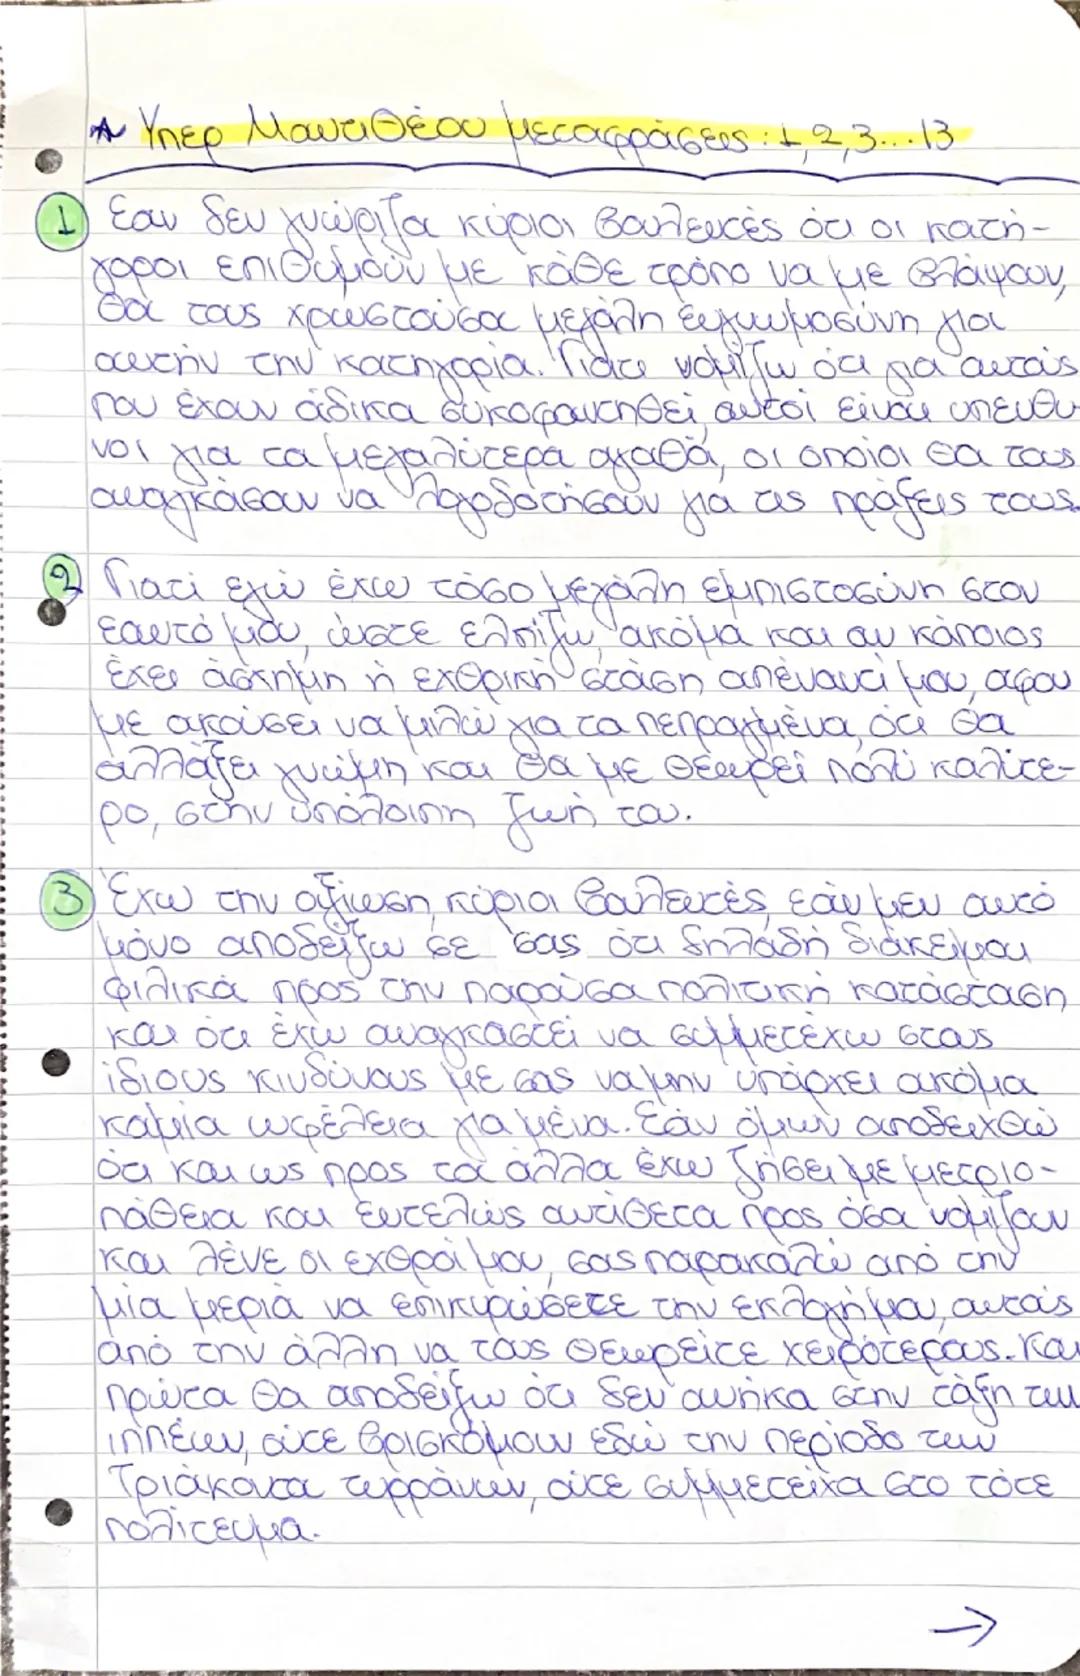 * Υπερ Μαντιθέου μεταφράσεις: 1, 2, 3...13
1 Εαν δεν γνώριζα κύριοι βουλευτές ότι οι κατή-
γοροι επιθυμούν με κάθε τρόπο να με βλάψουν,
θα τους χρωστούσα μεγάλη ευγνωμοσύνη για
αυτήν την κατηγορία. Γιατί νομίζω ότι για αυτούς
που έχουν άδικα συκοφαντηθεί, αυτοί είναι υπευθυ-
νοι για τα μεγαλύτερα αγαθά, οι οποίοι θα τους
αναγκάσουν να λογοδοτήσουν για τις πράξεις τους.
2 Γιατί εγώ έχω τόσο μεγάλη εμπιστοσύνη στον
εαυτό μου, ώστε ελπίζω, ακόμα και αν κάποιος
έχει άσχημη ή εχθρική στάση απέναντί μου, αφου
με ακούσει να μιλώ για τα πεπραγμένα, ότι θα
αλλάξει γνώμη και θα με θεωρεί πολύ καλύτε-
ρο, στην υπόλοιπη ζωή του.
3 Έχω την αξίωση, κύριοι βουλευτές, εάν μεν αυτό
μόνο αποδείξω σε σας ότι δηλαδή διάκειμαι
φιλικά προς την παρούσα πολιτική κατάσταση
και ότι έχω αναγκαστεί να συμμετέχω στους
ίδιους κινδύνους με σας να μην υπάρχει ακόμα
καμία ωφέλεια για μένα. Εάν όμων αποδειχθώ
ότι και ως προς τα άλλα έχω ζήσει με μετριο-
πάθεια και εντελώς αντίθετα προς όσα νομίζουν
και λένε οι εχθροί μου, σας παρακαλώ από την
μία μεριά να επικυρώσετε την εκλογή μου, αυτούς
από την άλλη να τους θεωρείτε χειρότερους. Και
πρώτα θα αποδείξω ότι δεν ανήκα στην τάξη των
ιππέων, ούτε βρισκόμουν εδώ την περίοδο των
Τριάκοντα τυρράνων, ούτε συμμετείχα στο τότε
πολίτευμα.
→